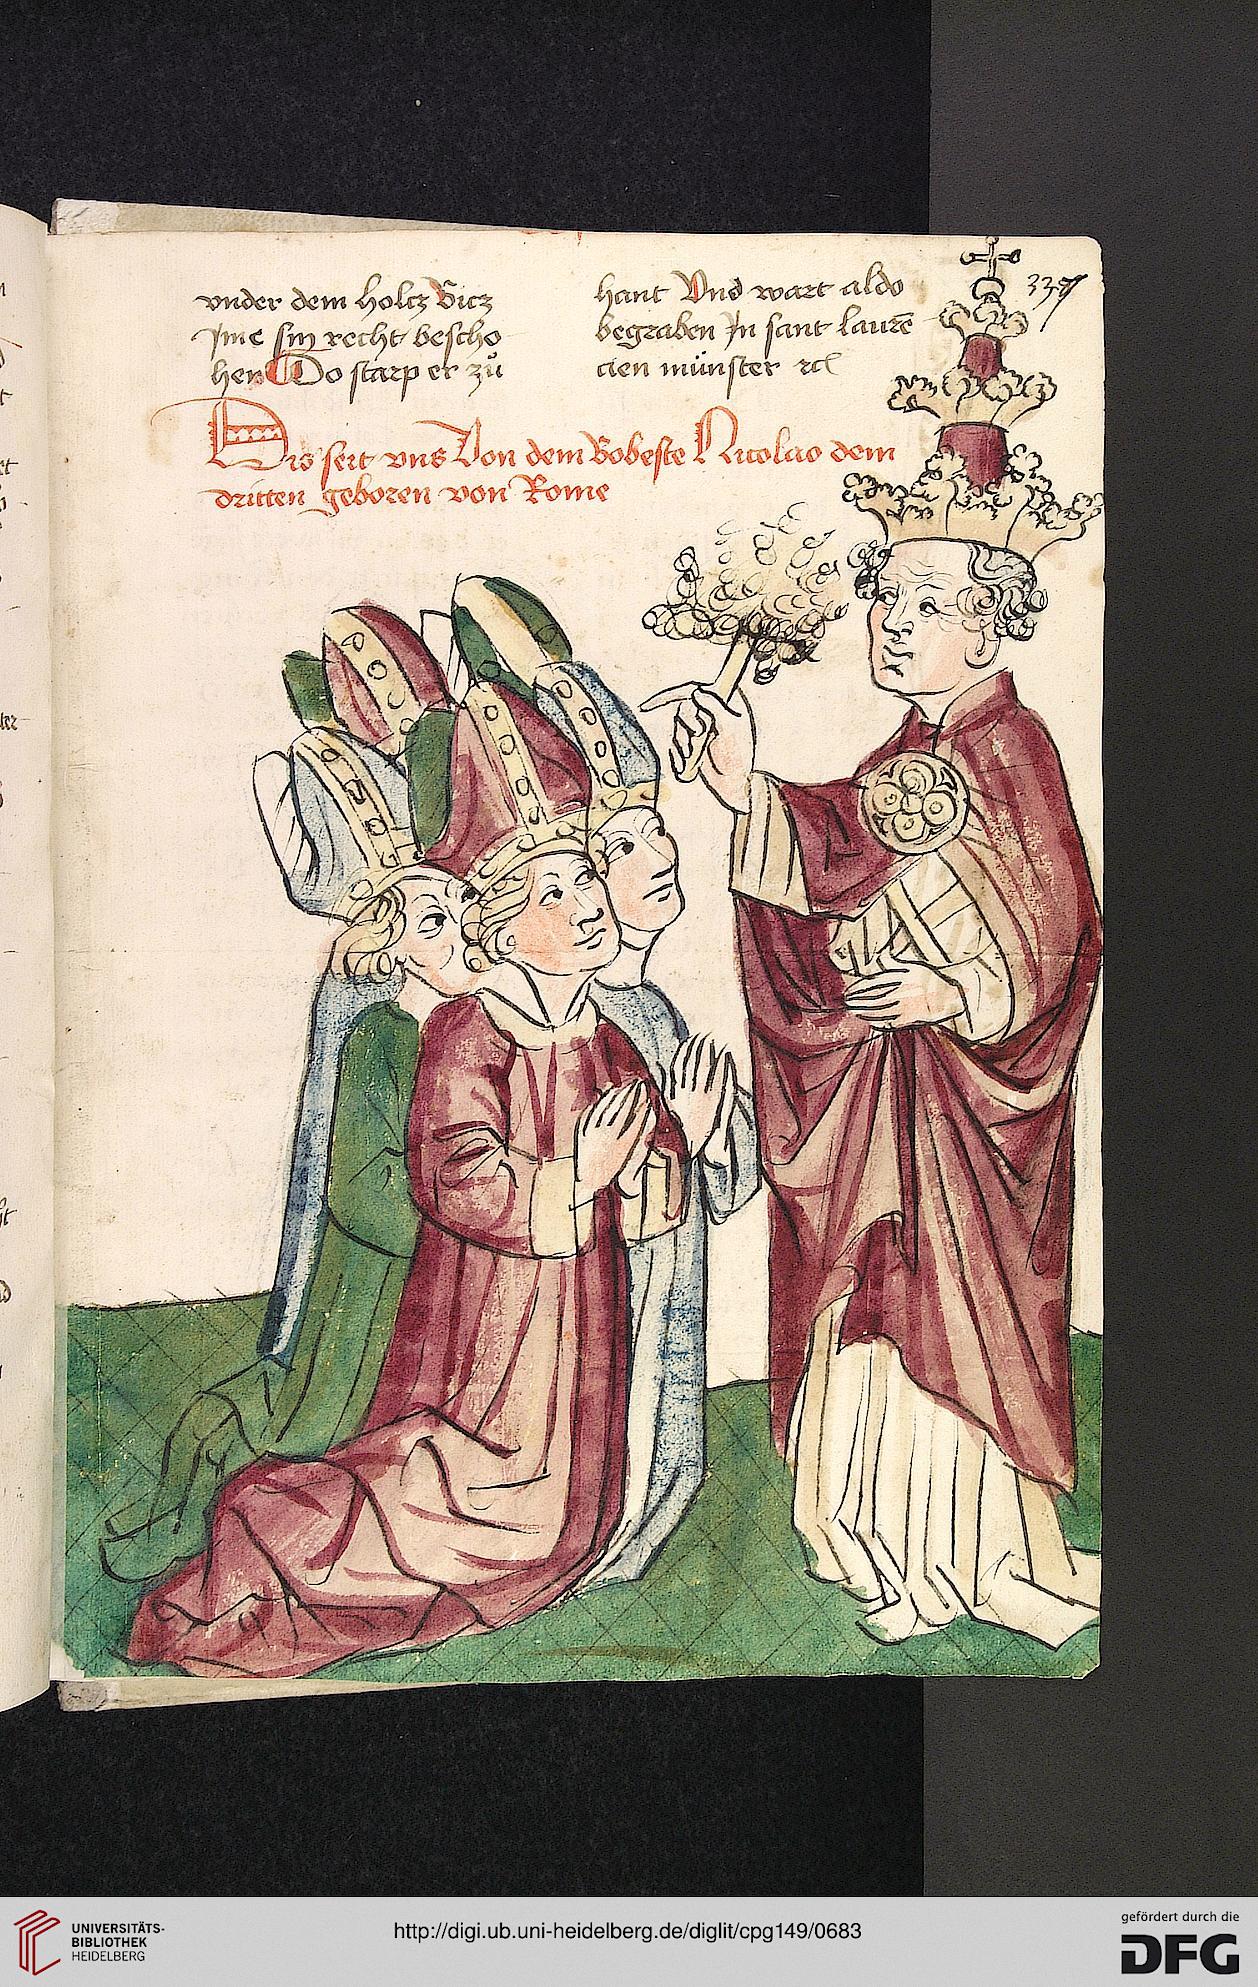 337
vnder dem holcz Bicz
Jme sin recht bescho
hen Do starp er zů
hant Vnd wart aldo
begraben Jn sant laurē
cien münster rc
Dis seit vns Von dem Bobeste Nicolao dem
dritten geboren von Rome
UNIVERSITÄTS-
BIBLIOTHEK
HEIDELBERG
http://digi.ub.uni-heidelberg.de/diglit/cpg149/0683
gefördert durch die
DFG